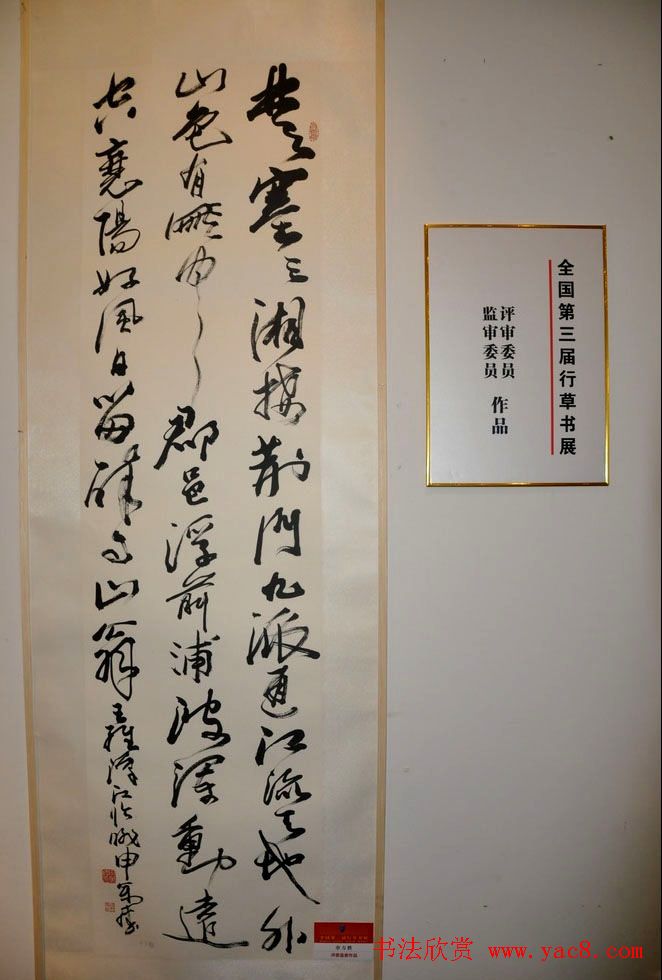 楚塞三湘接荆門九派通江流天地外
山色有無中郡邑浮前浦波瀾動遠
空襄陽好風日留醉与山翁
王維漢江臨眺申萬勝
全国第三届行草书展
评审委员
监审委员
作品
申万胜
书法欣赏 www.yac8.com